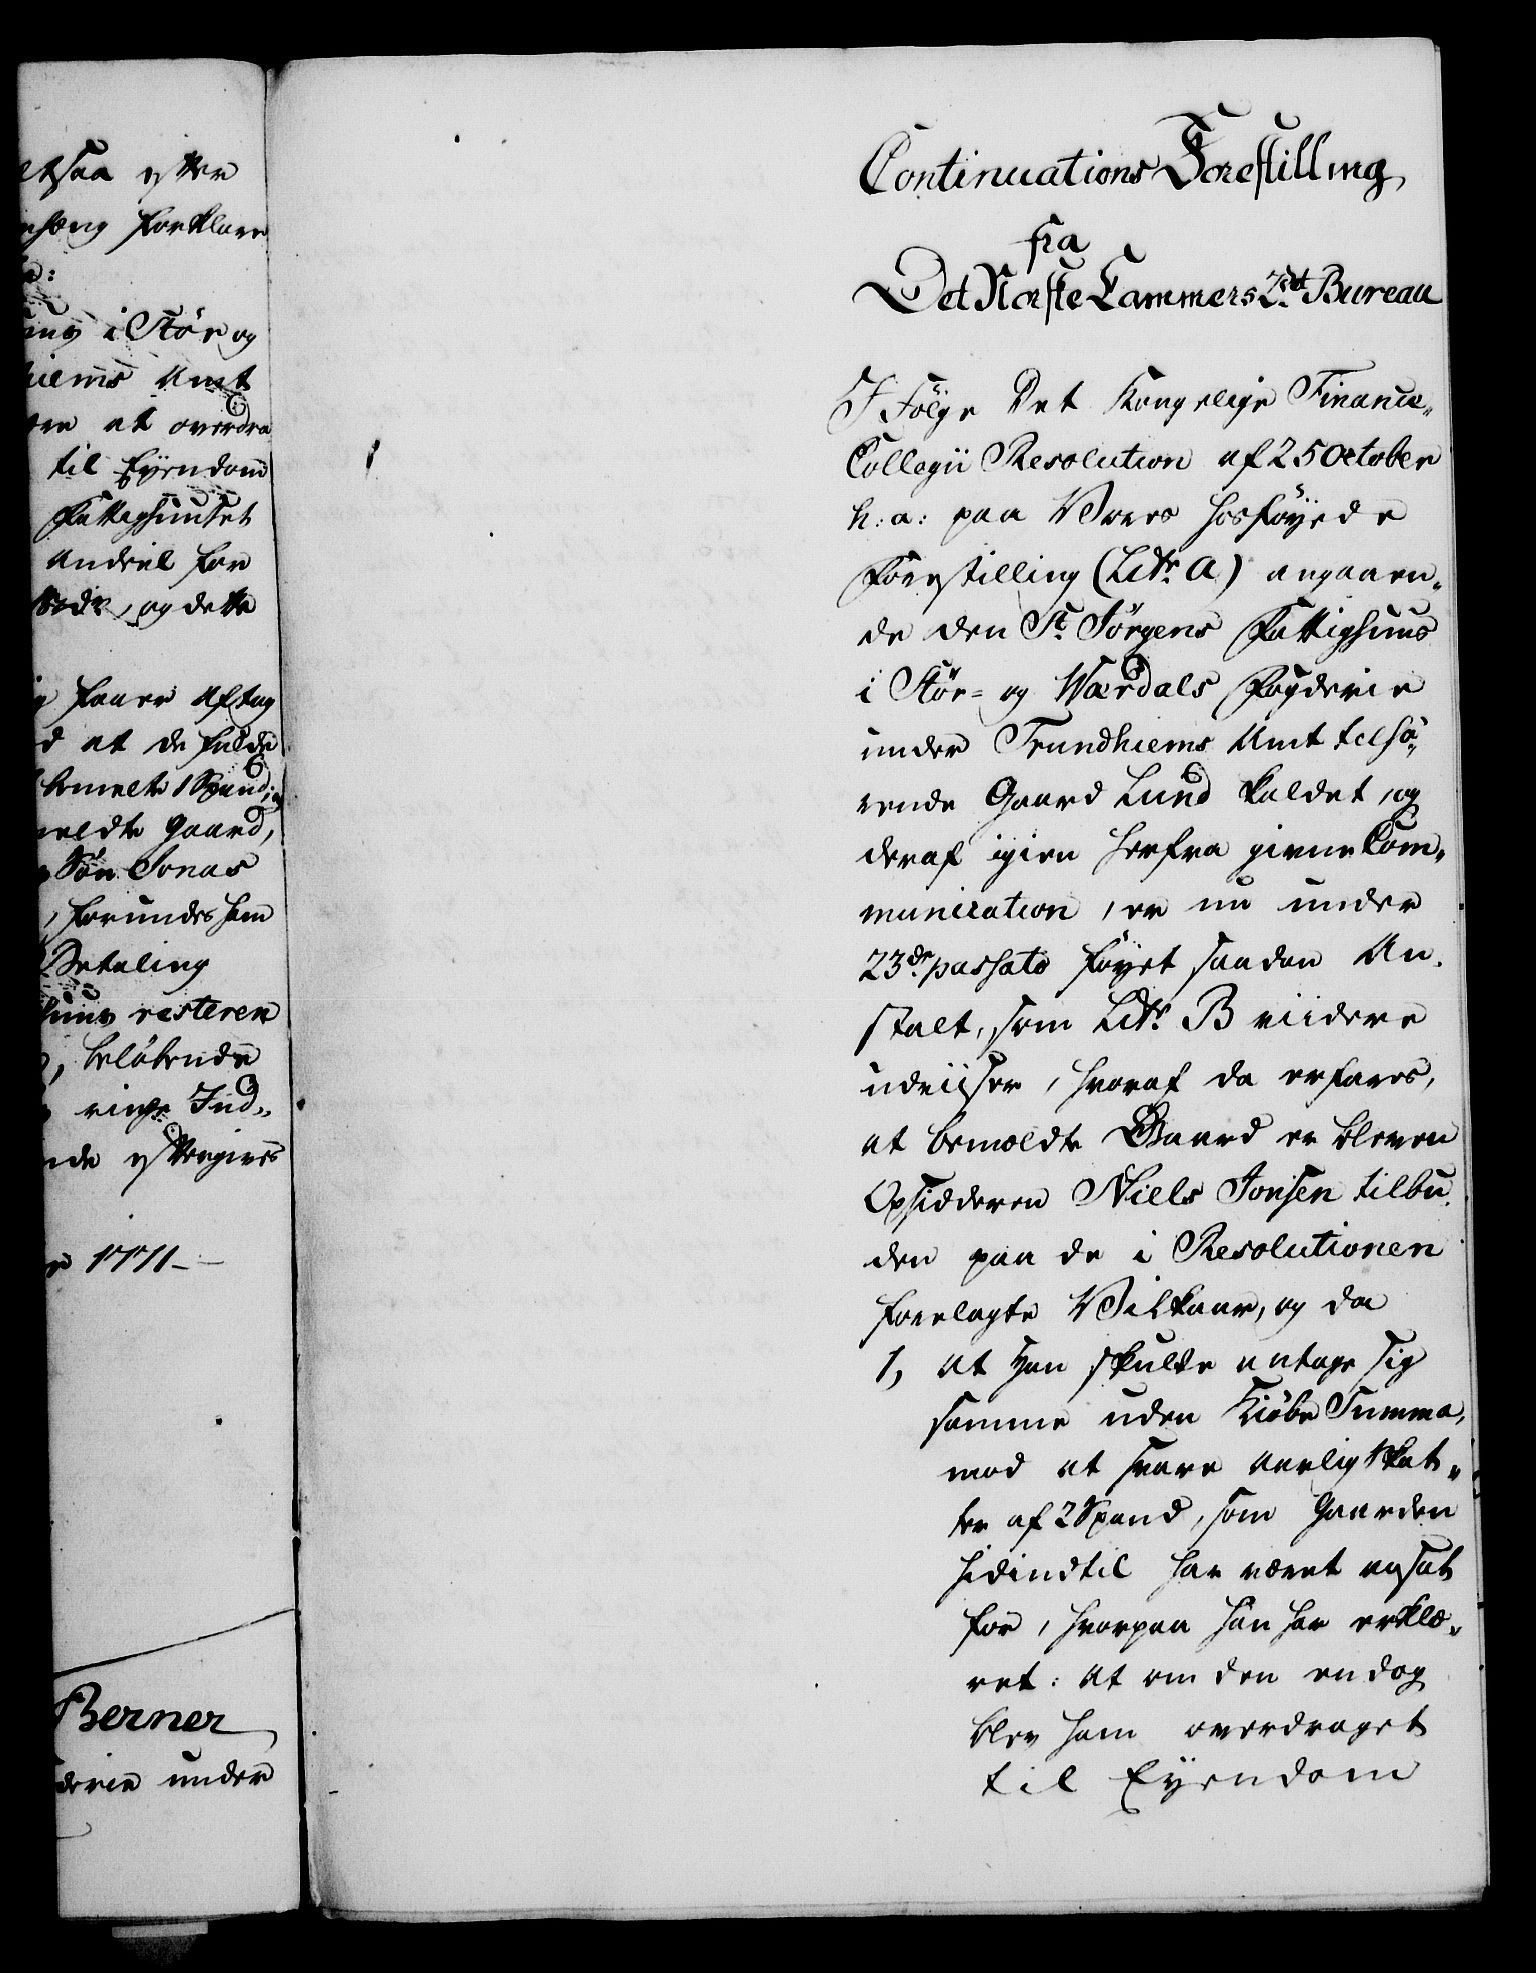 etsaa efter
hæng forklare
huus i Stör og
hiems Amt
at overdra
til Eyendom
Fattighuuset
Andeel for
og dette
faaer Aftag
at de fulde
bemelte 1 Spand, og
meldte Gaard,
Søn Jonas
, forundes ham
Betaling
huus resteren
, beløbende
ringe Ind„
eftergives
1771
Berner
derie under
Continuations Forestilling
fra
Det Norske Cammers 2det Bureau
I Følge Det Kongelige Finance„
Collegii Resolution af 25 October
h: a: paa Vores hosföyede
Forestilling (Litr: A) angaaen„
de den St. Jörgens Fattighuus
i Stör- og Værdals Fogderie
under Trundhiems Amt tilhö„
rende Gaard Lund kaldet, og
deraf igien herfra givne Com„
munication, er nu under
23de passato föyet saadan An„
stalt, som Litr: B viidere
udviiser, hvoraf da erfares,
at bemeldte Gaard er bleven
Opsidderen Niels Jonsen tilbu„
den paa de i Resolutionen
foreslagte Vilkaar, og da
1, at han skulde antage sig
samme uden Kiöbe Summa,
mod at svare aarlig Skat„
ter af 2 Spand, som Gaarden
hidindtil har været ansat
for, hvorpaa han har erklæ„
ret: at om den endog
blev ham overdraget
til Eyendom